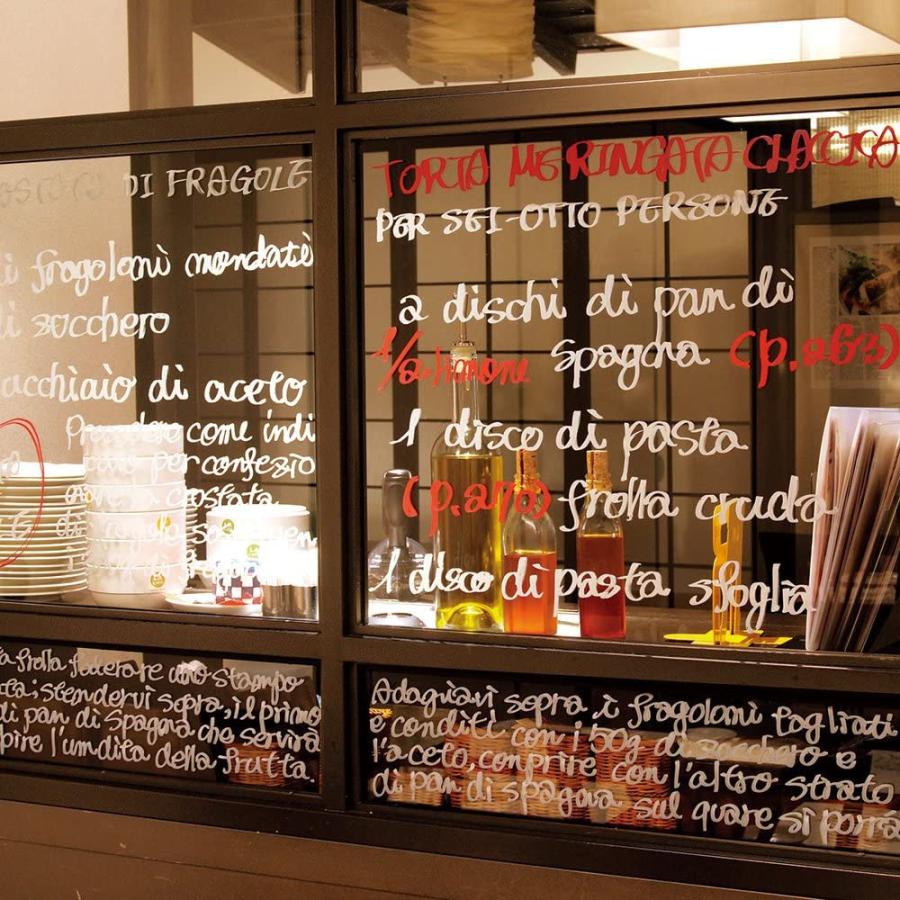 DI FRAGOLE
di fragoloni mondati
di zucchero
acchiaio di aceto
Prendere come indi
per confezio
crostata
TORTA MERINGATA CLASSICA
PER SEI-OTTO PERSONE
2 dischi di pan di
1/2 limone
spagna (p.263)
1 disco di pasta
(p.270) frolla cruda
1 disco di pasta sfoglia
ta frolla foderare uno stampo
ta; stendervi sopra, il primo
di pan di spagna che servirà
pire l'umdita della frutta.
Adagiavi sopra i fragoloni tagliati
e conditi con i 50g di zucchero e
l'aceto, conprire con l'altro strato
di pan di spagna sul quare si porrà